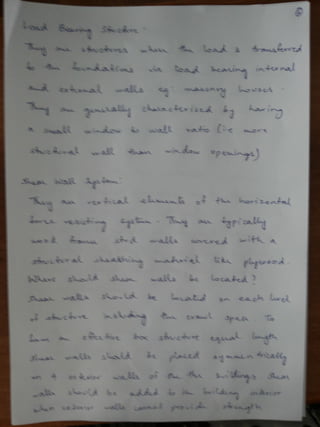 Load Bearing Structure:
They are structures where the load is transferred
to the foundations via load bearing internal
and external walls eg: masonry houses.
They are generally characterized by having
a small window to wall ratio (ie more
structural wall than window openings)
Shear Wall System:
They are vertical elements of the horizontal
force resisting system. They are typically
wood frame stud walls covered with a
structural sheathing material like plywood.
Where should shear walls be located?
Shear walls should be located on each level
of structure including the crawl space. To
form an effective box structure equal length
shear walls should be placed symmetrically
on 4 exterior walls of the the buildings. Shear
walls should be added to the building interior
when exterior walls cannot provide strength